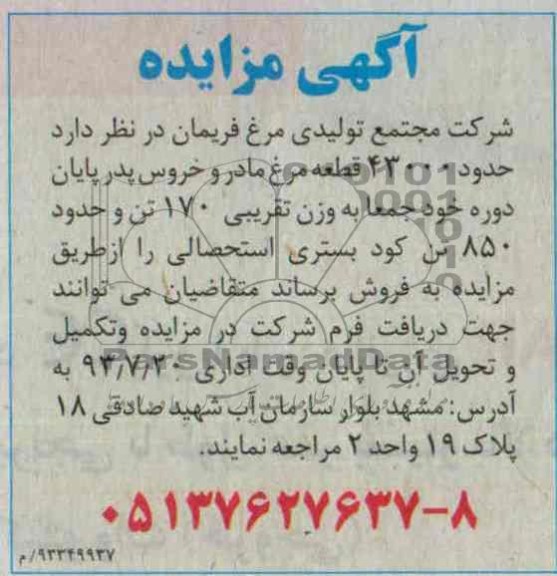 آگهی مزایده
شرکت مجتمع تولیدی مرغ فریمان در نظر دارد
حدود ۴۳۰۰۰ قطعه مرغ مادر و خروس پدر پایان
دوره خود جمعا به وزن تقریبی ۱۷۰ تن و حدود
۸۵۰ تن کود بستری استحصالی را ازطریق
مزایده به فروش برساند متقاضیان می توانند
جهت دریافت فرم شرکت در مزایده وتکمیل
و تحویل آن تا پایان وقت اداری ۹۳/۷/۲۰ به
آدرس: مشهد بلوار سازمان آب شهید صادقی ۱۸
پلاک ۱۹ واحد ۲ مراجعه نمایند.
۰۵۱۳۷۶۲۷۶۳۷-۸
۹۳۳۴۹۹۳۷/م
ParsNamadData